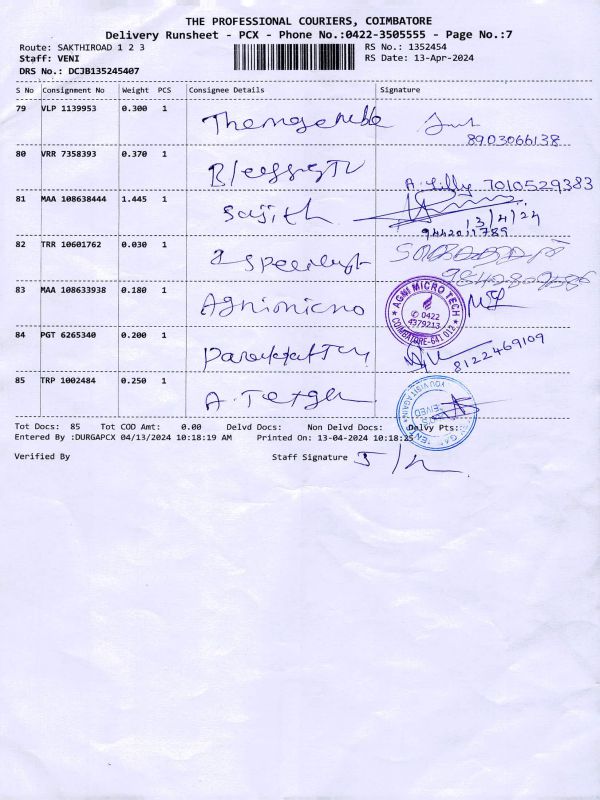 THE PROFESSIONAL COURIERS, COIMBATORE
Delivery Runsheet - PCX - Phone No.:0422-3505555 - Page No.:7
Route: SAKTHIROAD 1 2 3 RS No.: 1352454
Staff: VENI RS Date: 13-Apr-2024
DRS No.: DCJB135245407
S No Consignment No Weight PCS Consignee Details Signature
79 VLP 1139953 0.300 1
8903066138
80 VRR 7358393 0.370 1
A. Lilly 7010529383
81 MAA 108638444 1.445 1 Sajith
13/4/24
9442011789
82 TRR 10601762 0.030 1
83 MAA 108633938 0.180 1 Agnimicro
AGNI MICRO TECH
✆ 0422
4379213
COIMBATORE-641 012
84 PGT 6265340 0.200 1
8122469109
85 TRP 1002484 0.250 1
YOU VISIT AGAIN
Tot Docs: 85 Tot COD Amt: 0.00 Delvd Docs: Non Delvd Docs: Delvy Pts:
Entered By :DURGAPCX 04/13/2024 10:18:19 AM Printed On: 13-04-2024 10:18:25
Verified By Staff Signature